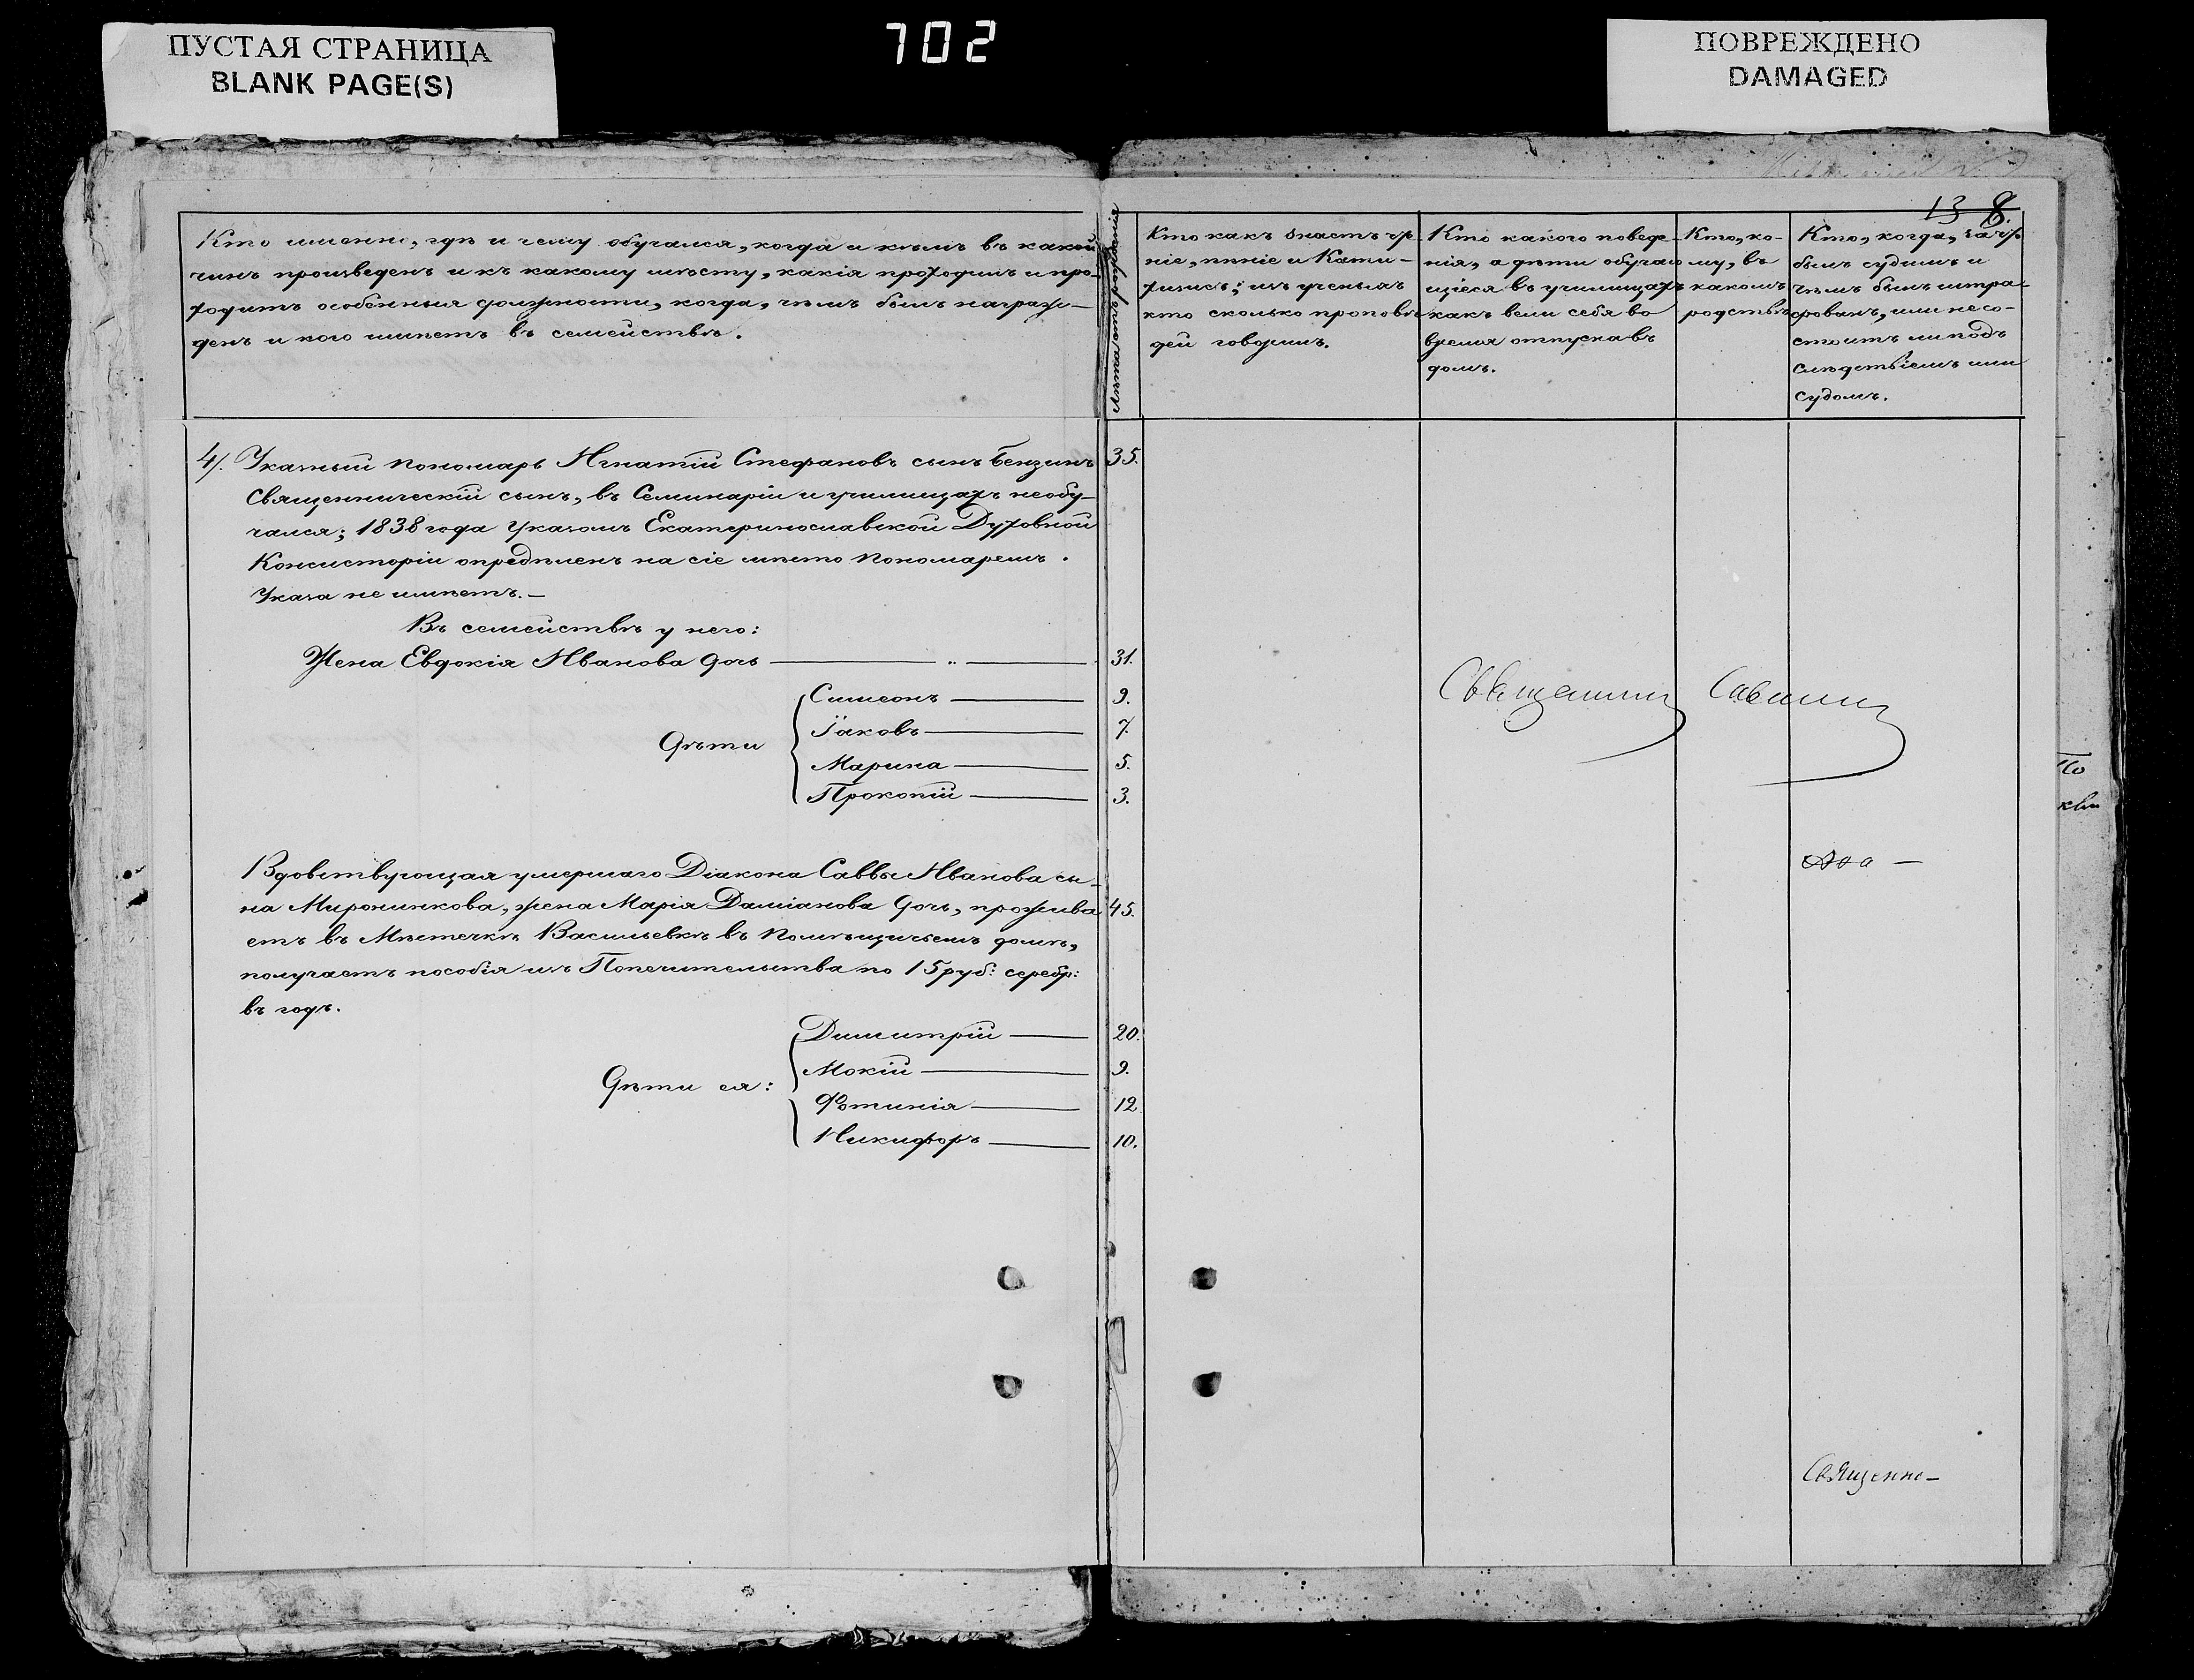 ПУСТАЯ СТРАНИЦА
BLANK PAGE(S)
702
ПОВРЕЖДЕНО
DAMAGED
13 8.
Кто именно, гдѣ и чему обучался, когда и кѣмъ въ какой
чинъ произведенъ и къ какому мѣсту, какія проходилъ и про-
ходитъ особенныя должности, когда, чѣмъ былъ награж-
денъ и кого имѣетъ въ семействѣ.
Лѣта отъ рожденія
Кто какъ знаетъ чте-
ніе, пѣніе и Кати-
хизисъ; изъ ученыхъ
кто сколько проповѣ-
дей говорилъ.
Кто какого поведе-
нія, а дѣти обучаю
щіеся въ училищахъ
какъ вели себя во
время отпуска въ
домъ.
Кто, ко-
му, въ
какомъ
родствѣ
Кто, когда, за что
былъ судимъ и
чѣмъ былъ штра-
фованъ, или несо-
стоитъ ли подъ
слѣдствіемъ или
судомъ.
4). Указный пономарь Игнатій Стефановъ сынъ Бензинъ 35.
Священническій сынъ, въ Семинаріи и училищахъ необу-
чался; 1838 года Указомъ Екатеринославской Духовной
Консисторіи опредѣленъ на сіе мѣсто пономаремъ.
Указа не имѣетъ.—
Въ семействѣ у него:
Жена Евдокія Иванова дочь — „ — 31.
Дѣти
Симеонъ — 9.
Іаковъ — 7.
Марина — 5.
Прокопій — 3.
Священникъ Савин
Вдовствующая умершаго Діакона Саввы Иванова сы-
на Миронинкова, жена Марія Даміанова дочь, прожива 45.
етъ въ Мѣстечкѣ Васильевкѣ въ помѣщичьемъ домѣ,
получаетъ пособія изъ Попечительства по 15 руб: серебр:
въ годъ.
Дѣти ея:
Димитрій — 20.
Мокій — 9.
Фотинія — 12
Никифоръ — 10.
Священно-